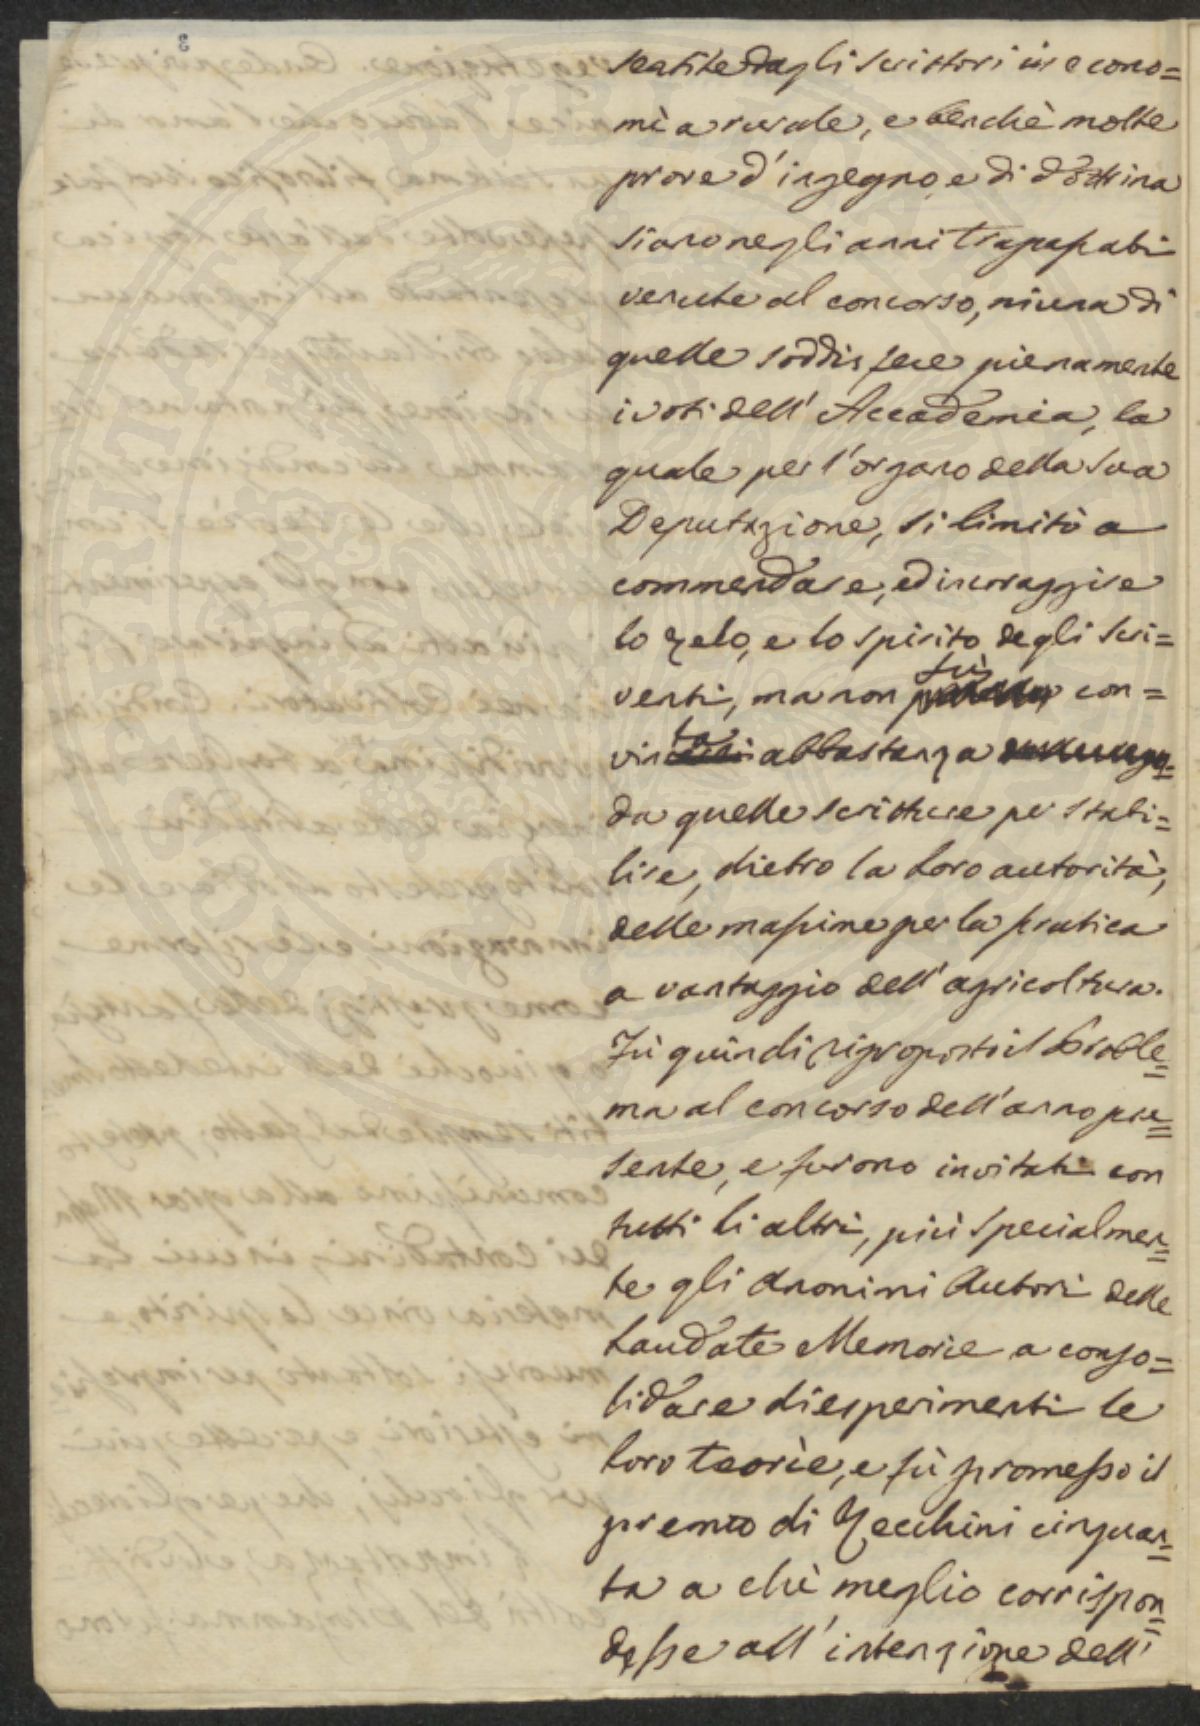 3
sentite dagli scrittori in econo=
mia rurale, e benchè molte
prove d'ingegno, e di dottrina
siano negli anni trapassati
venute al concorso, niuna di
quelle soddisfece pienamente
i voti dell' Accademia, la
quale per l'organo della sua
Deputazione, si limitò a
commendare, ed incoraggire
lo zelo, e lo spirito degli scri=
venti, ma non fù con=
vinta abbastanza
da quelle scritture per stabi=
lire, dietro la loro autorità,
delle massime per la pratica
a vantaggio dell' agricoltura.
Fù quindi riproposto il Proble=
ma al concorso dell'anno pre=
sente, e furono invitati con
tutti li altri, più specialmen=
te gli Anonimi Autori delle
laudate Memorie a conso=
lidare di esperimenti le
loro teorie, e fù promesso il
premio di Zecchini cinquan=
ta a chi meglio corrispon=
desse all' intenzione dell'